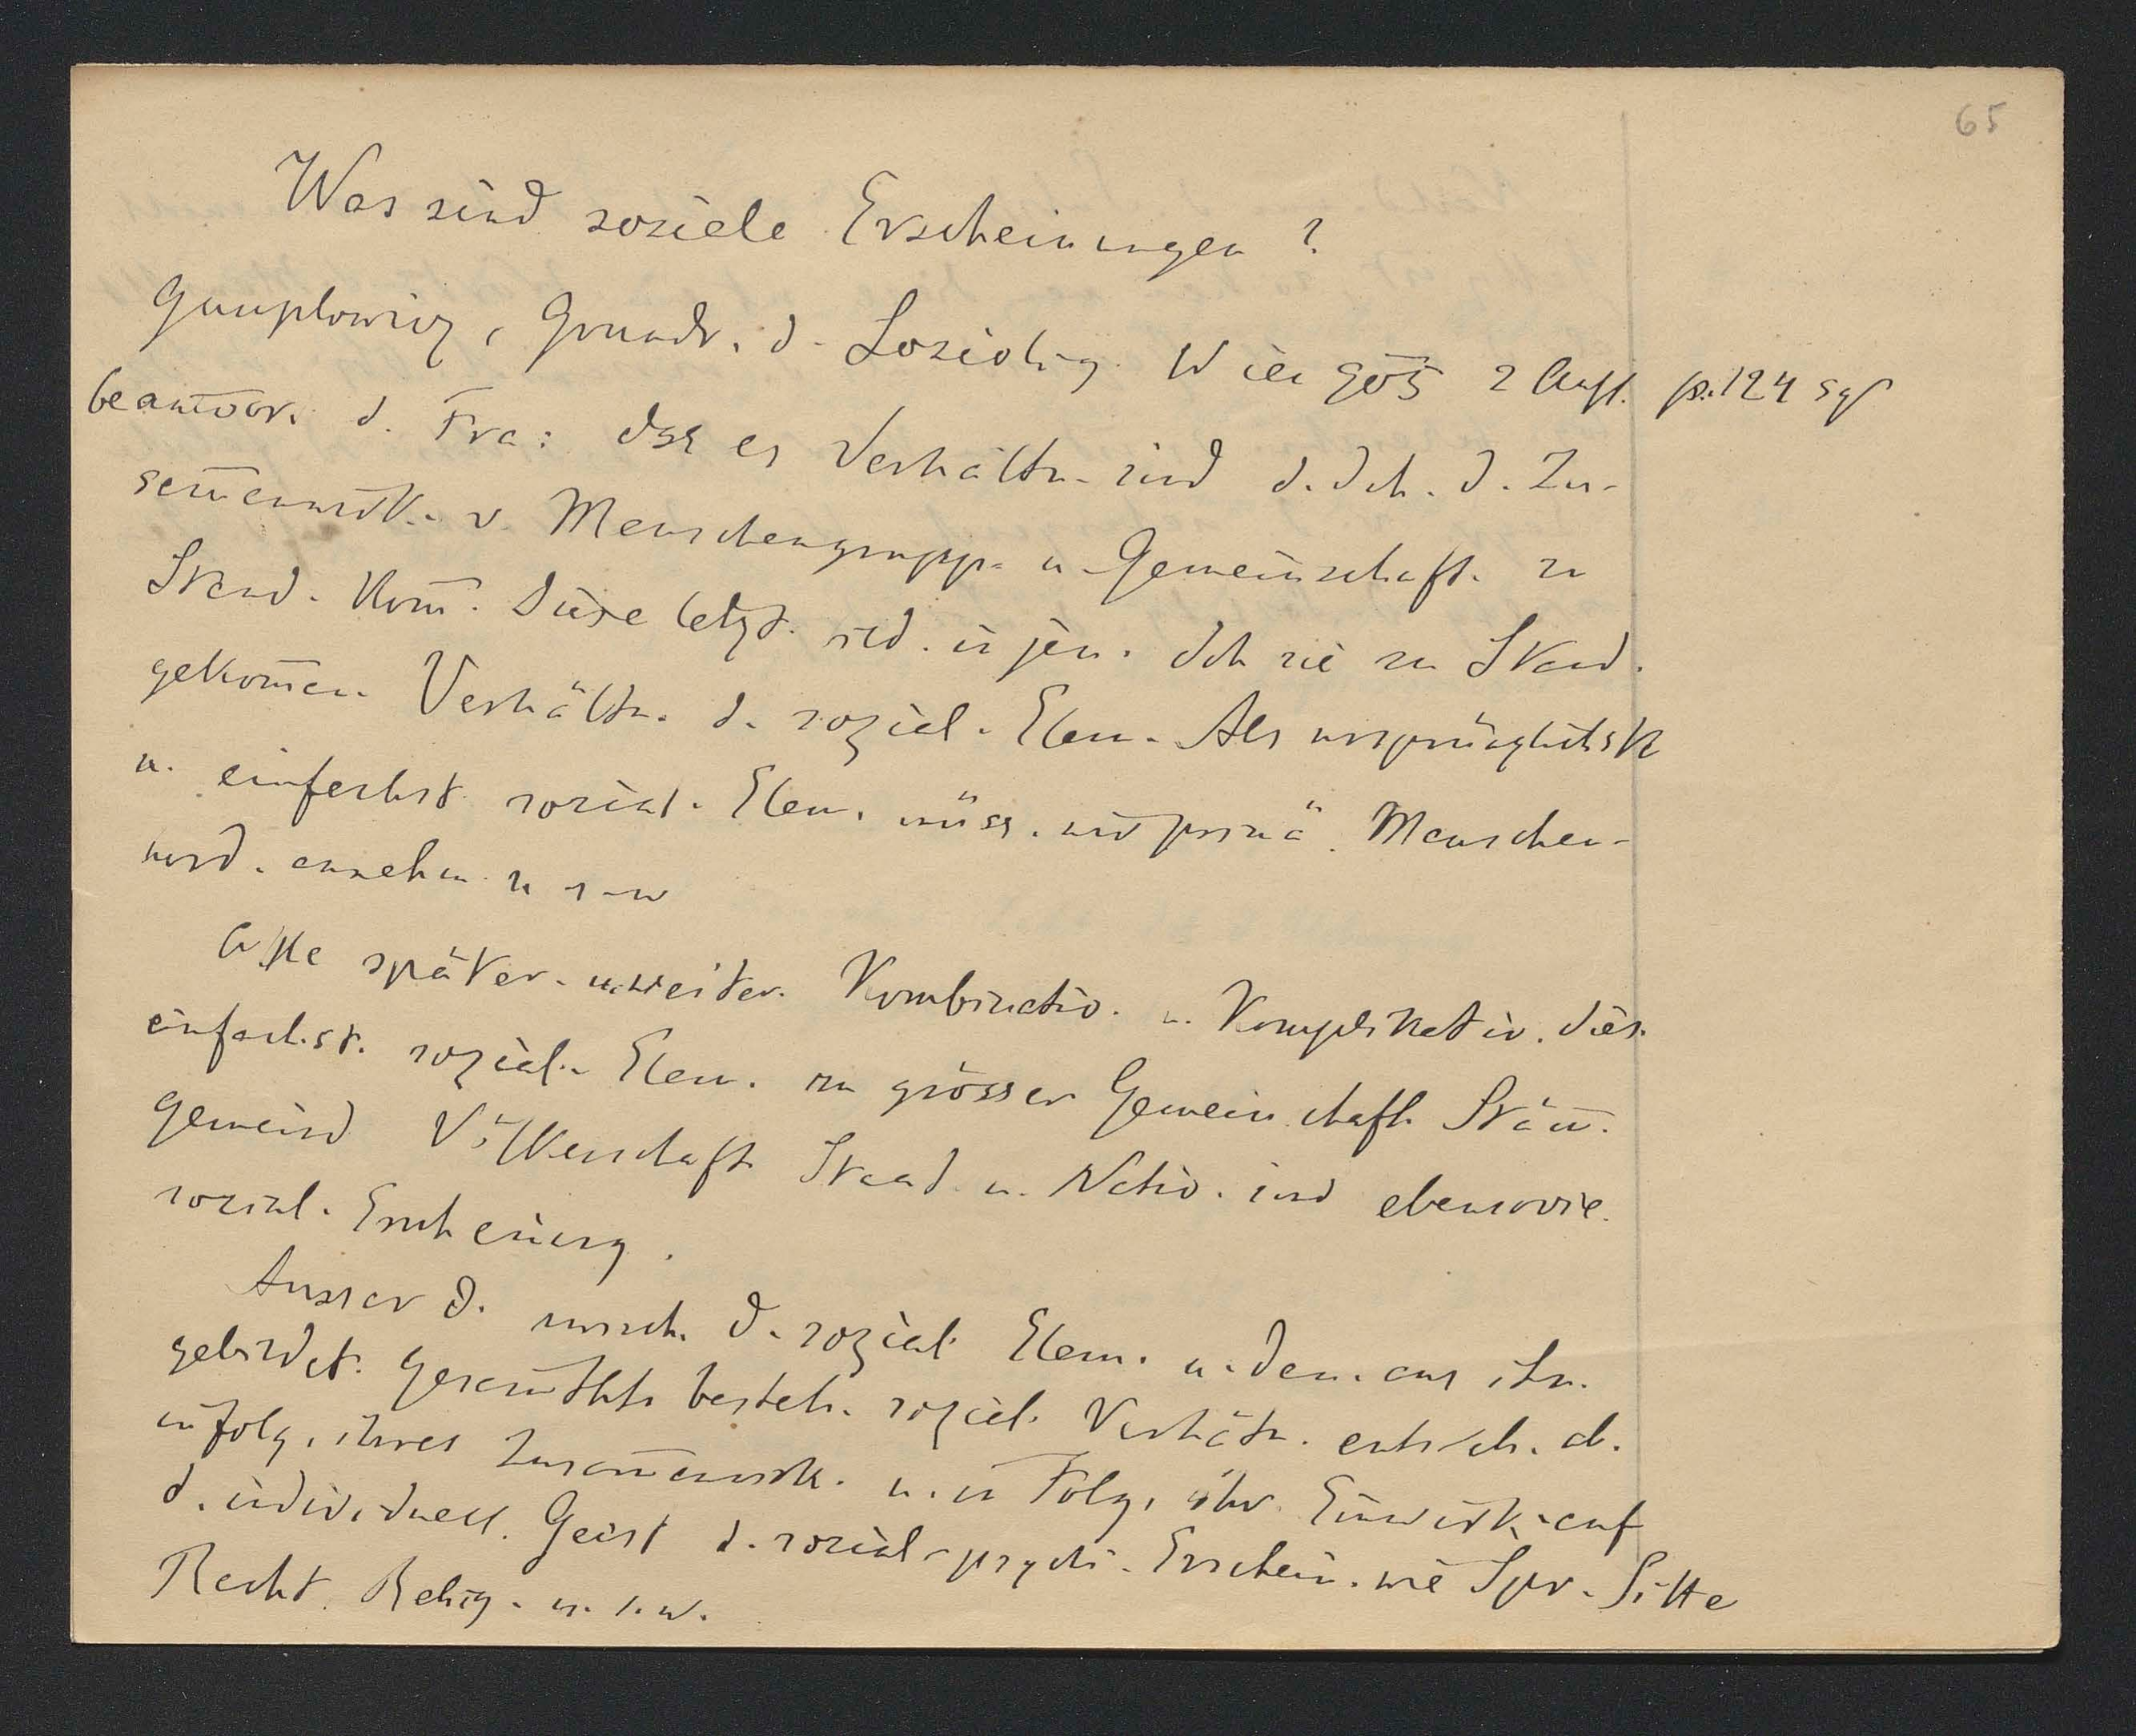 65
Was sind soziale Erscheinungen?
Gumplowicz, Grundr. d. Soziolog. Wien 905 2 Aufl. p. 124 sq
beantwor. d. Fra: dss es Verhältn. sind d. dch. d. Zu-
sam̅enwirk. v. Menschengrupp. u. Gemeinschaft. zu
Stand. kom̅. Diese letzt. sid. in jen. dch sie zu Stand.
gekom̅en. Verhältn. d. sozial. Elem. Als ursprünglichste
u. einfachst sozial. Elem. müss. wir primä. Menschen-
hord. annehm. u s w
Alle später. u. weiter. Kombinatio. u. Komplikatio. dies.
einfachst. sozial. Elem. zu grösser Gemeinschaft. Stäm̅.
Gemeind Völkerschaft. Staat u. Natio. sind ebensovie.
sozial. Erscheinung.
Ausser d. zwisch. d. sozial. Elem. u. den. aus ihn.
gebildet. Gesam̅thtn besteh. sozial. Verhältn. entsteh. ab.
infolg. ihres Zusam̅enwirk. u. in Folg. ihr. Einwirk. auf
d. individuell. Geist d. sozial-psychi. Erschein. wie Spr. Sitte
Recht. Relig. u. s. w.